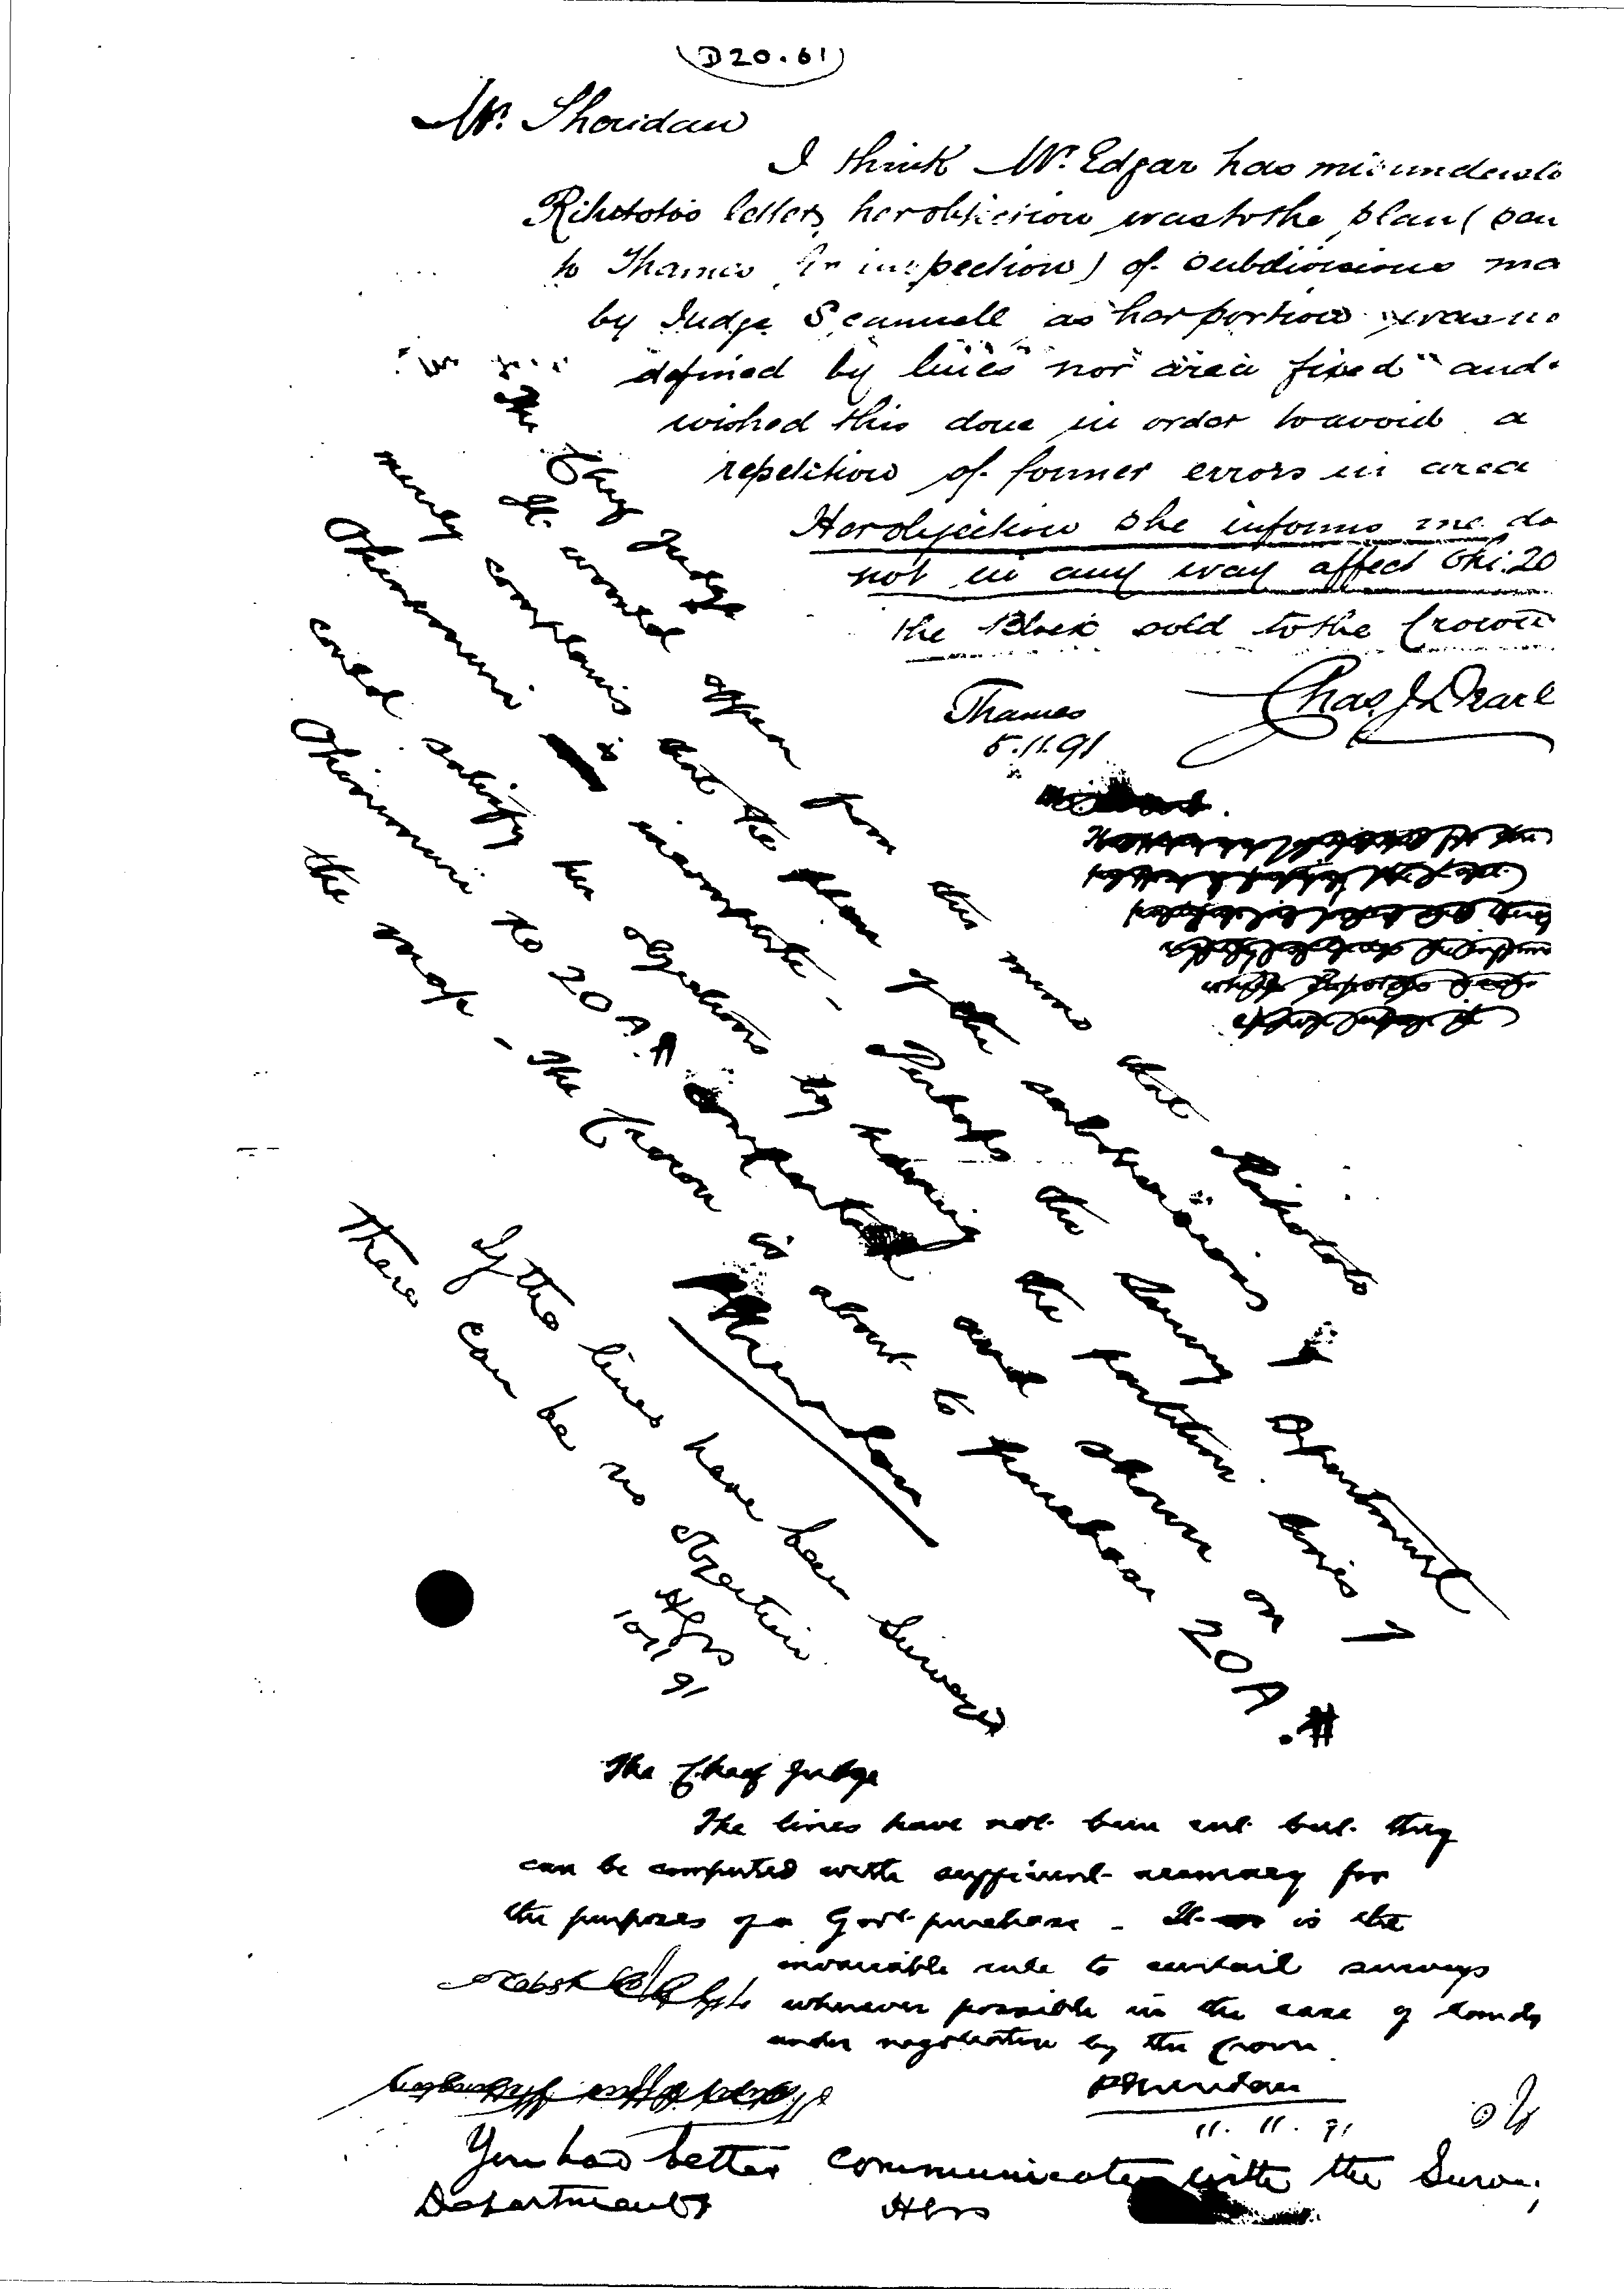 D20.61
Mr. Sheridan
I think Mr. Edgar has misunderstо
Rihitotos letter, her objection was to the plan (sen
to Thames for inspection) of subdivisions ma
by Judge Scannell as "her portion was no
defined by lines nor area fixed" and
wished this done in order to avoid a
repetition of former errors in area
Her objection she informs me do
not in any way affect Ohi. 20
the Block sold to the Crown
Thames
5.11.91
The Chief Judge
It would appear from this memo that Rihitoto
merely complains that the plan of the subdivisions of Ohinemuri
Ohinemuri is incomplete - Perhaps the Survey Department
could satisfy her objections by having the partition lines of
Ohinemuri to 20 A. completed and shown on
the map - The Crown is about to purchase 20A.
PSheridan
If the lines have been surveyed
There can be no objection
HGS
10/11 91
The Chief Judge
The lines have not been cut but they
can be computed with sufficient accuracy for
the purposes of a Govt purchase - It is the
invariable rule to curtail surveys
whenever possible in the case of lands
under negotiation by the Crown.
PSheridan
11. 11. 91
You had better communicate with the Survey
Department
HGS